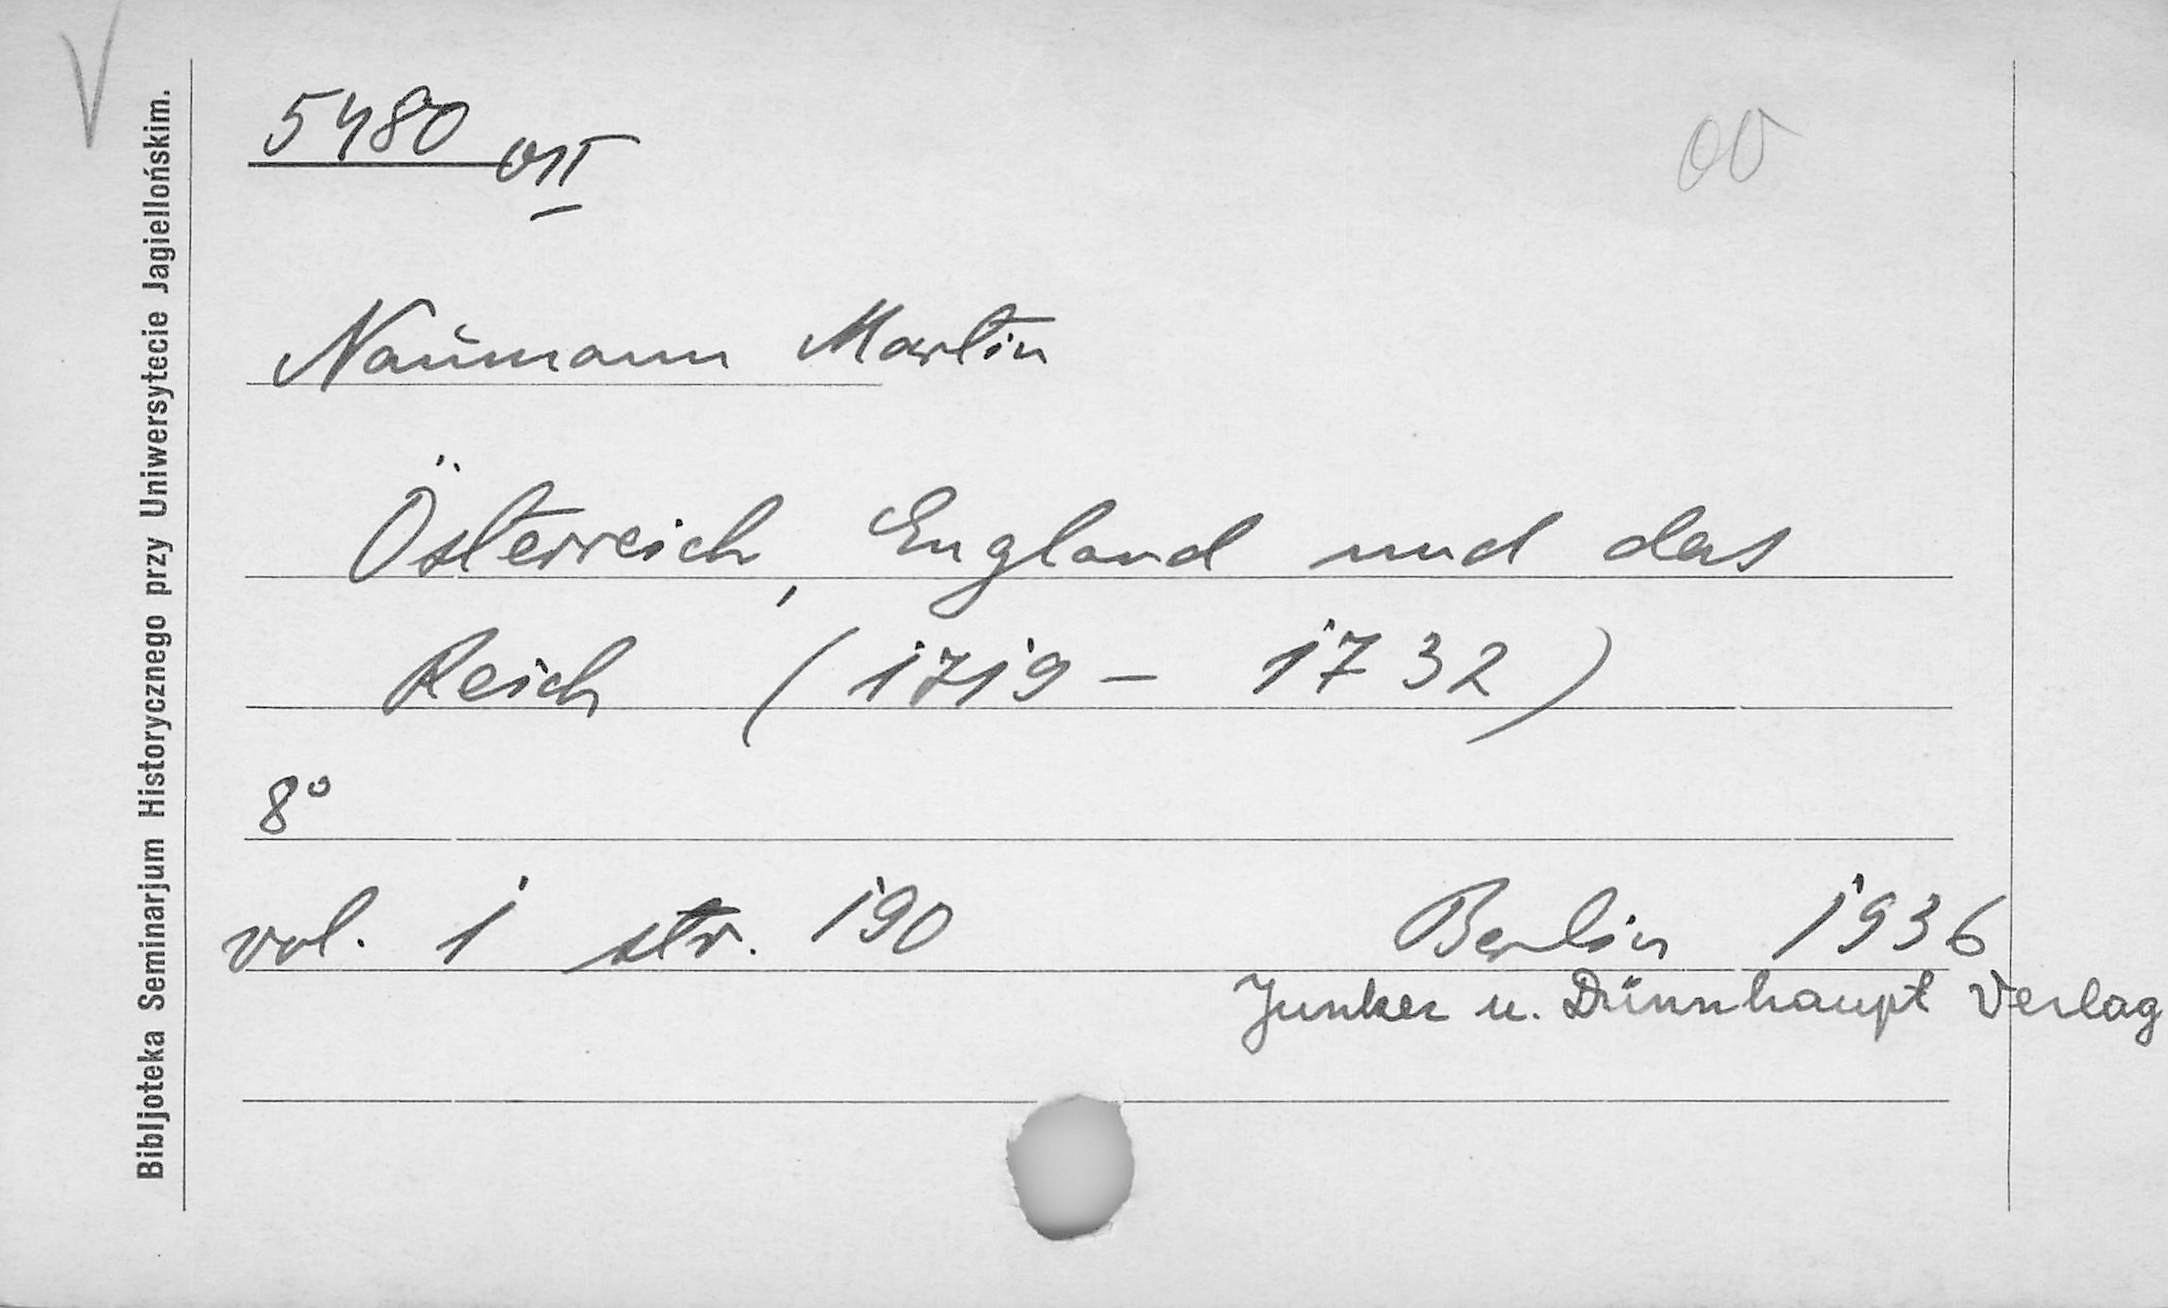 Bibljoteka Seminarjum Historycznego przy Uniwersytecie Jagiellońskim.
5480
Naumann Martin
Österreich, England und das
Reich (1719 – 1732)
8°
vol. 1 str. 190 Berlin 1936
Junker u. Dünnhaupt Verlag